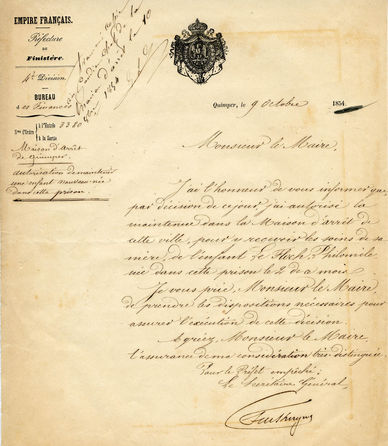 EMPIRE FRANÇAIS.
Préfecture
DU
Finistère.
4e Division.
BUREAU
des Finances
Nos d'Ordre
à l'Entrée 3380
à la Sortie
Maison d'Arrêt
de Quimper.
autorisation de maintenir
une enfant nouveau-née
dans cette prison
Quimper, le 9 Octobre 1854.
Monsieur le Maire,
J'ai l'honneur de vous informer que
par décision de ce jour, j'ai autorisé la
maintenue dans la Maison d'arrêt de
cette ville, pour y recevoir les soins de sa
mère, de l'enfant Philomèle
née dans cette prison le 2 de ce mois.
Je vous prie, Monsieur le Maire,
de prendre les dispositions nécessaires pour
assurer l'exécution de cette décision.
Agréez, Monsieur le Maire,
l'assurance de ma considération très distinguée.
Pour le Préfet empêché:
Le Secrétaire Général,